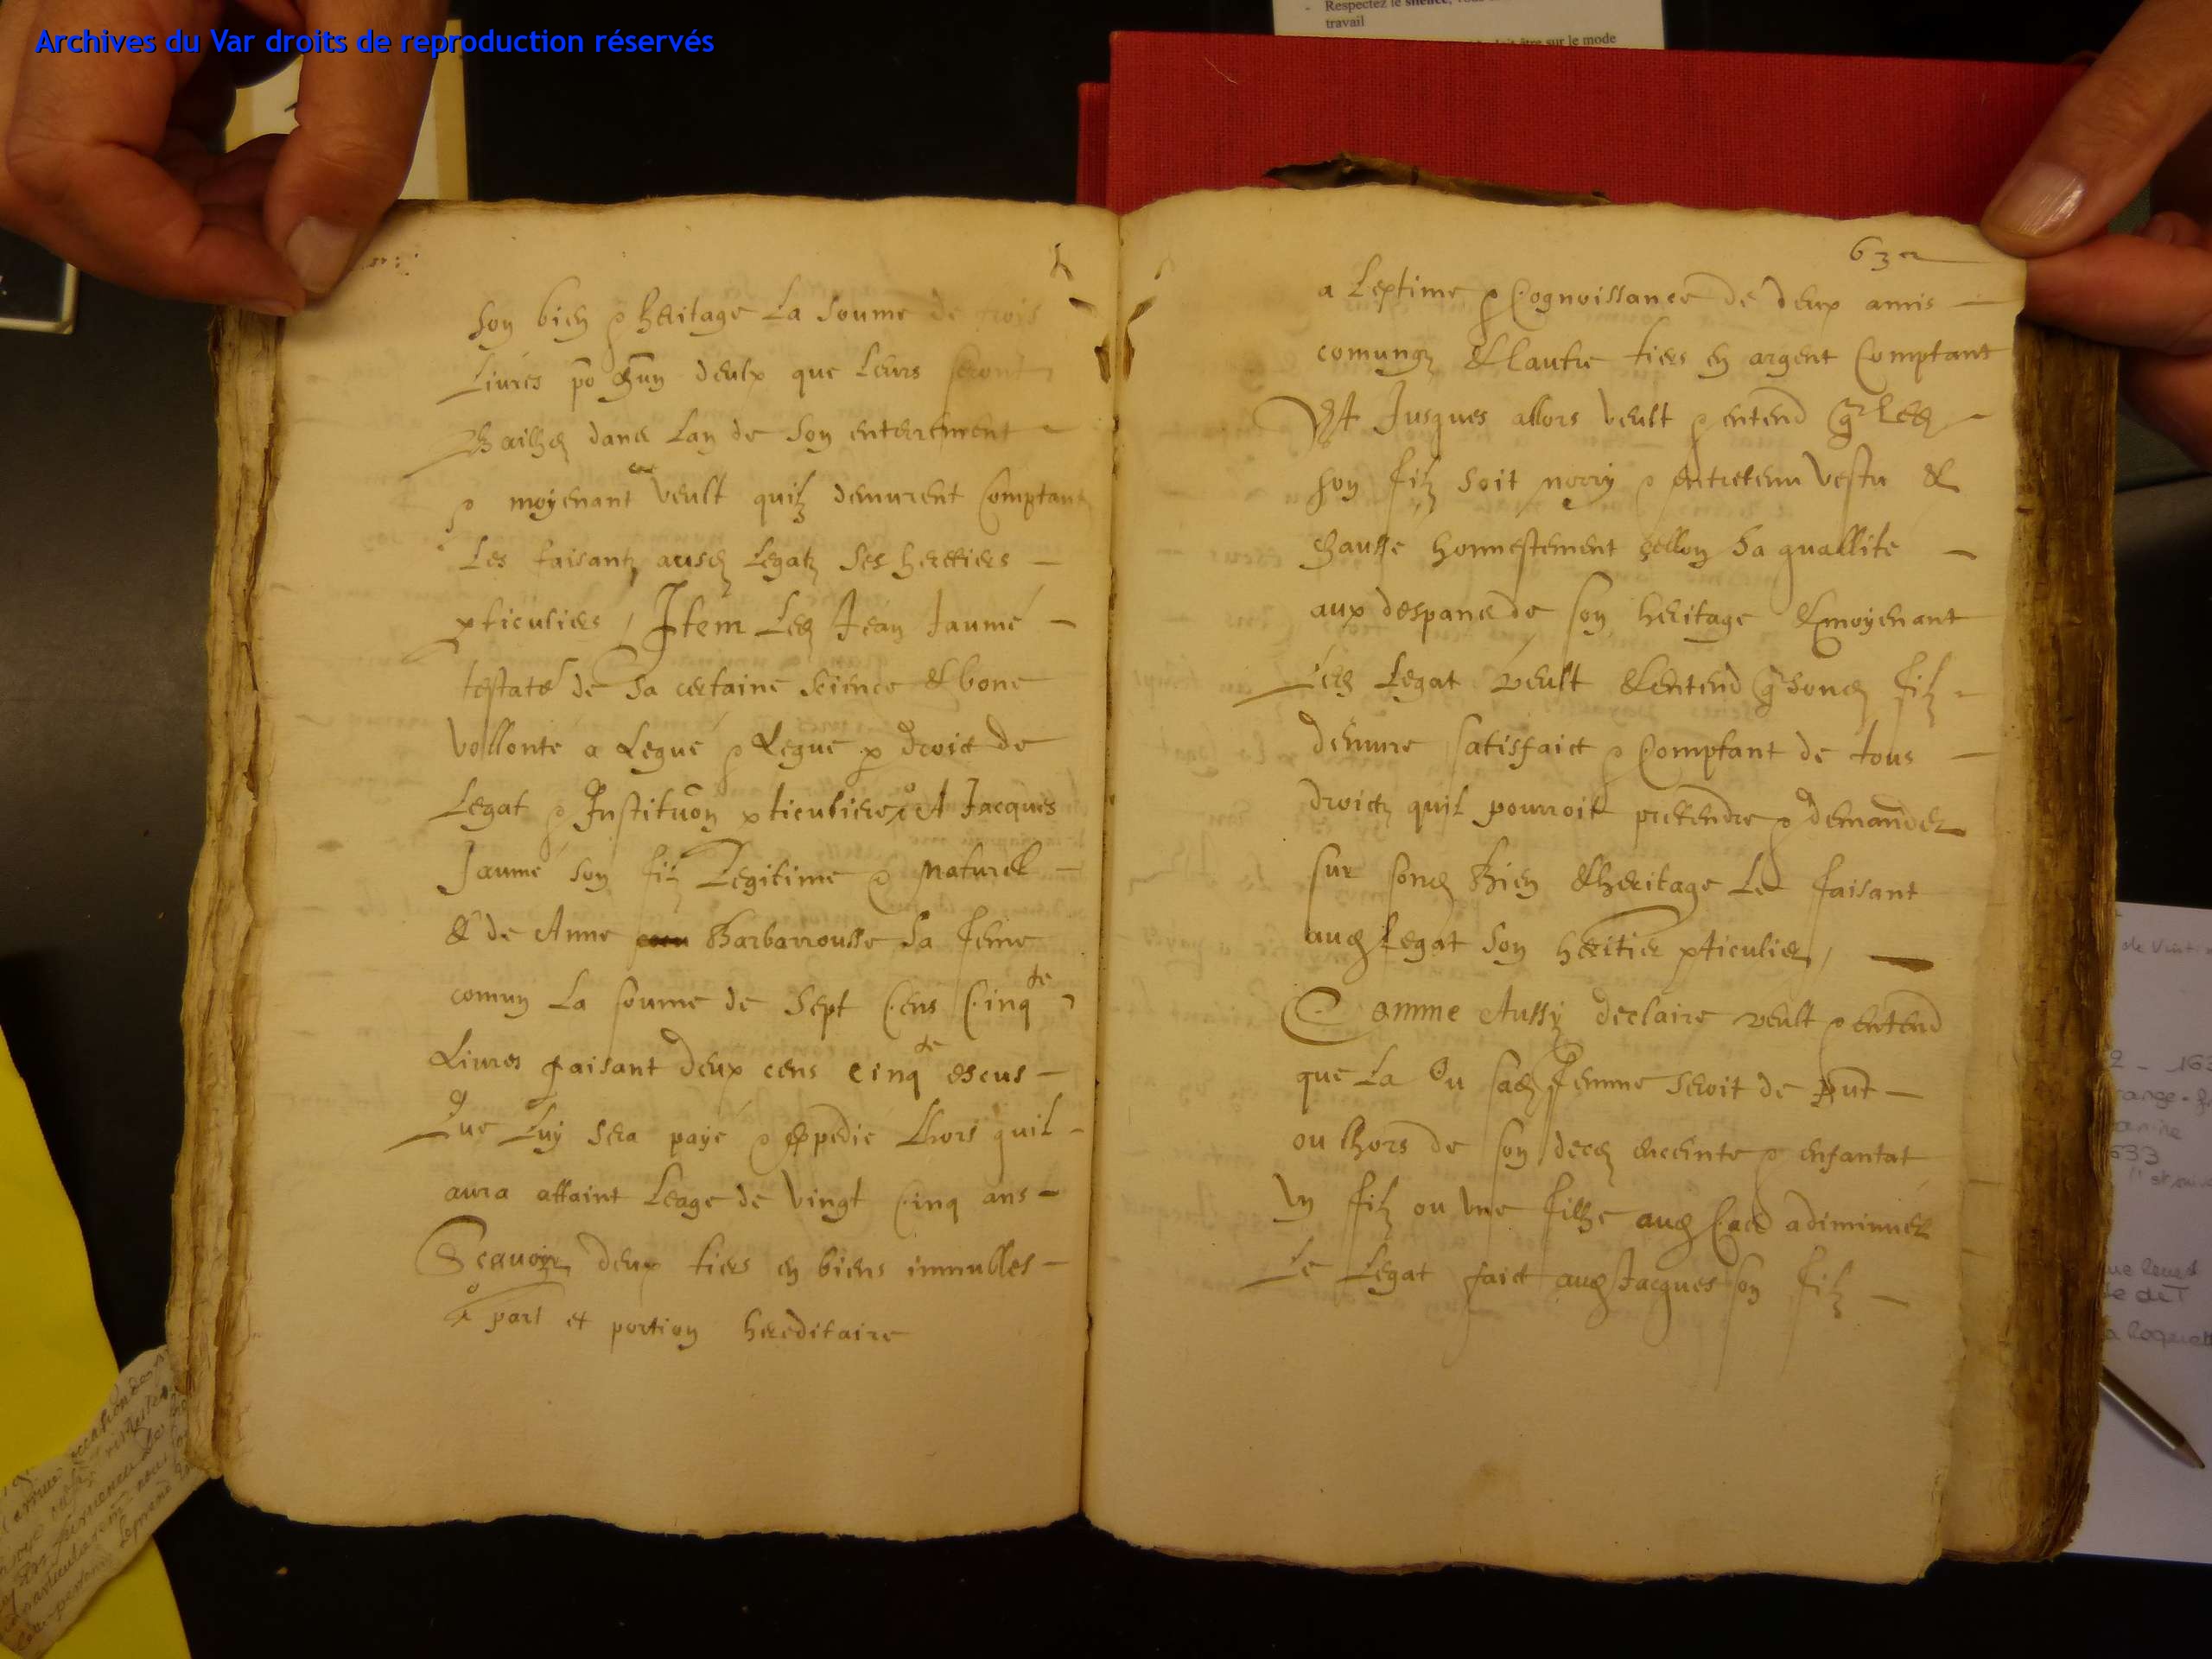 Archives du Var droits de reproduction réservés
- Respectez le silence, vous
travail
être sur le mode
son bien & heritage La soume de trois
Livres po chun deulx que Leurs seront
Bailhes dans Lan de son enterrement
& moyenant ce veult quilz demurent Comptant
Les faisantz ausd Legatz ses heretiers
pticuliers / Item Led Jean Jaume
testatr de sa certaine science & bone
vollonte a Legue & Legue p droict de
Legat & Instituon pticuliere A Jacques
Jaume son filz Legitime & naturel
& de Anne Barbarrousse sa feme
comun La soume de Sept Cens Cinqte
Livres faisant deux cens cinqte escus
Que Luy sera paye & expedie Lhors quil
aura attaint Leage de vingt Cinq ans
Scavoir deux tiers en biens immubles
a part et portion hereditaire
63
a Lextime & Cognoissance de deux amis
comungz & lautre tiers en argent Comptant
Et Jusques allors veult & entend q Led
son filz soit norry & entretenu vestu &
chausse honnestement sellon sa quallite
aux despans de son heritage & moyenant
Led Legat veult & entend q sond filz
demure satisfaict & Comptant de tous
droictz quil pourroit pretendre & demander
sur sond Bien & heritage Le faisant
aud Legat son heritier pticulier /
Comme Aussy declaire veult & entend
que La Ou sad femme seroit de pnt
ou lhors de son deces enceinte & enfantat
Un filz ou une filhe aud Cas a diminuer
Le Legat faict aud Jacques son filz